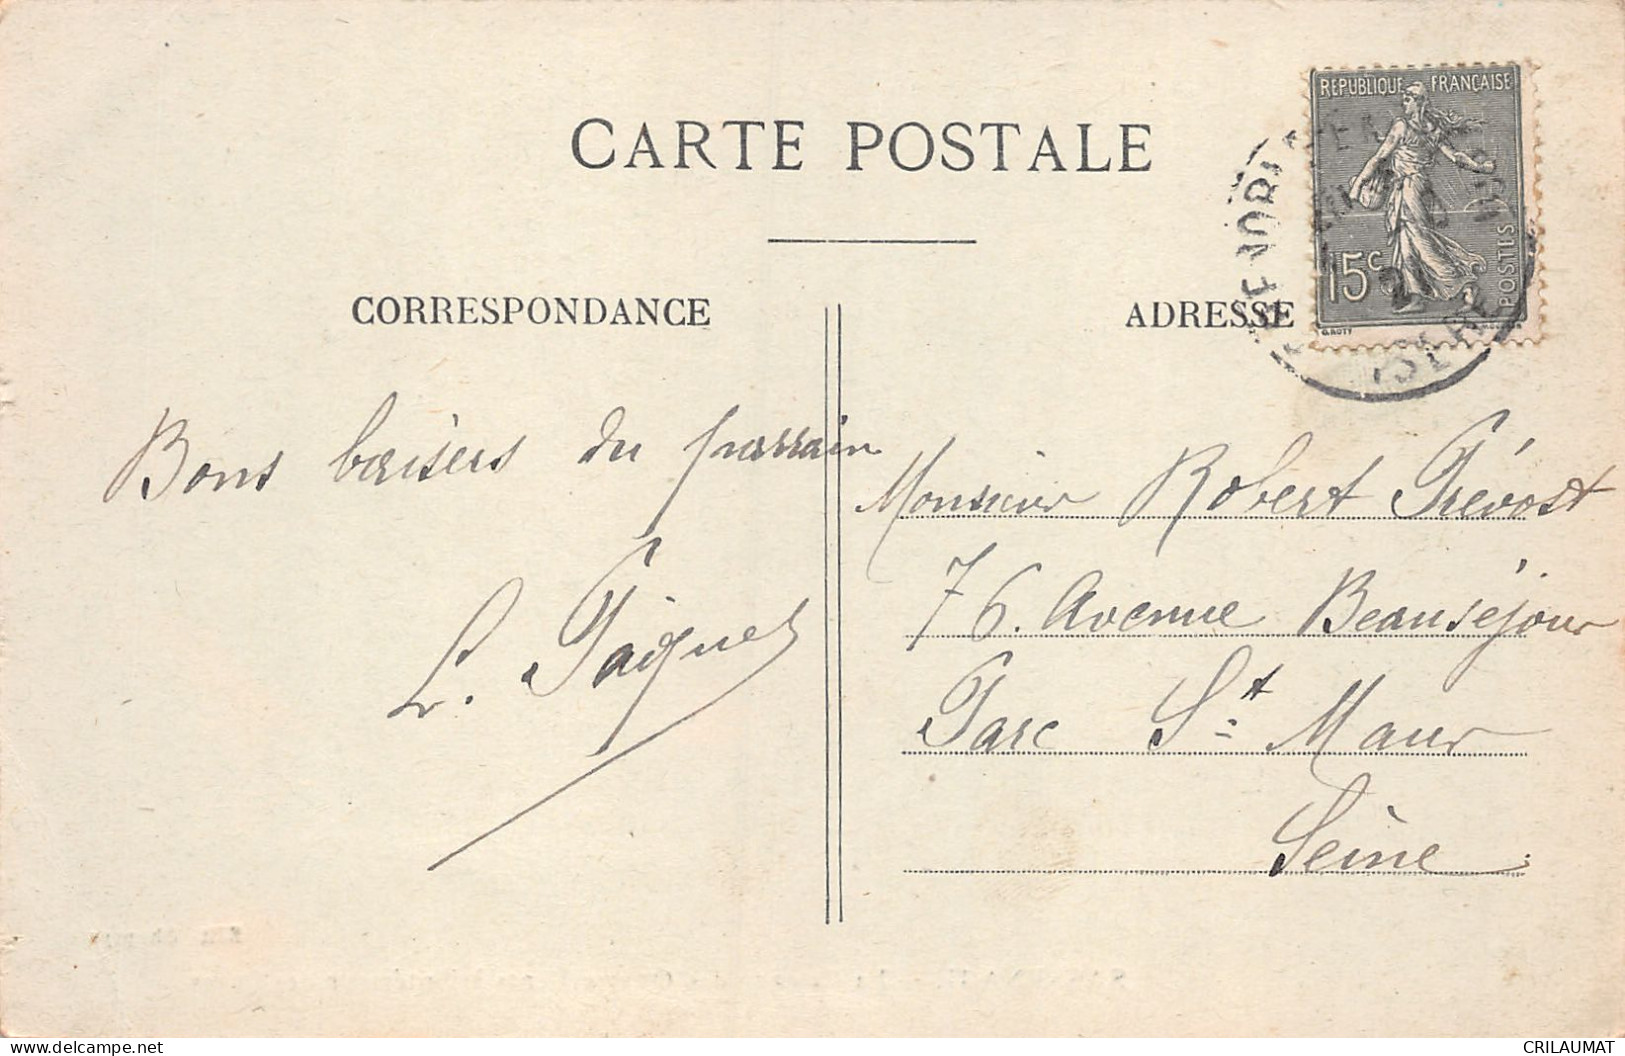 CARTE POSTALE
CORRESPONDANCE
ADRESSE
REPUBLIQUE FRANÇAISE
15c
POSTES
O. ROTY
21
ISERE
Bons baisers du parrain
L. Paignet
Monsieur Robert Prévost
76. Avenue Beauséjour
Parc St Maur
Seine
CRILAUMAT